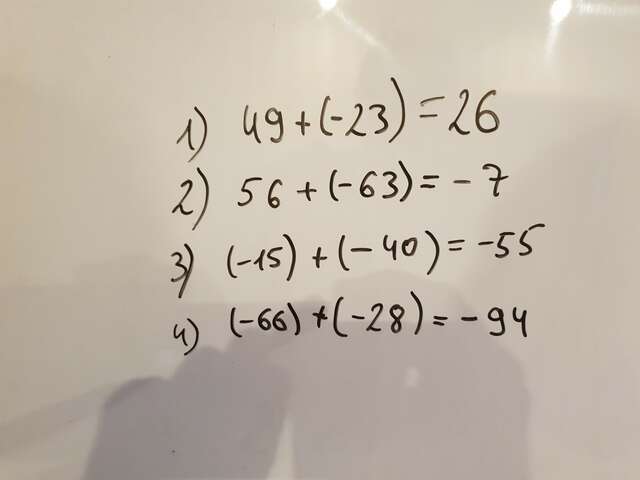 1) 49 + (-23) = 26
2) 56 + (-63) = - 7
3) (-15) + (- 40) = -55
4) (-66) + (-28) = - 94